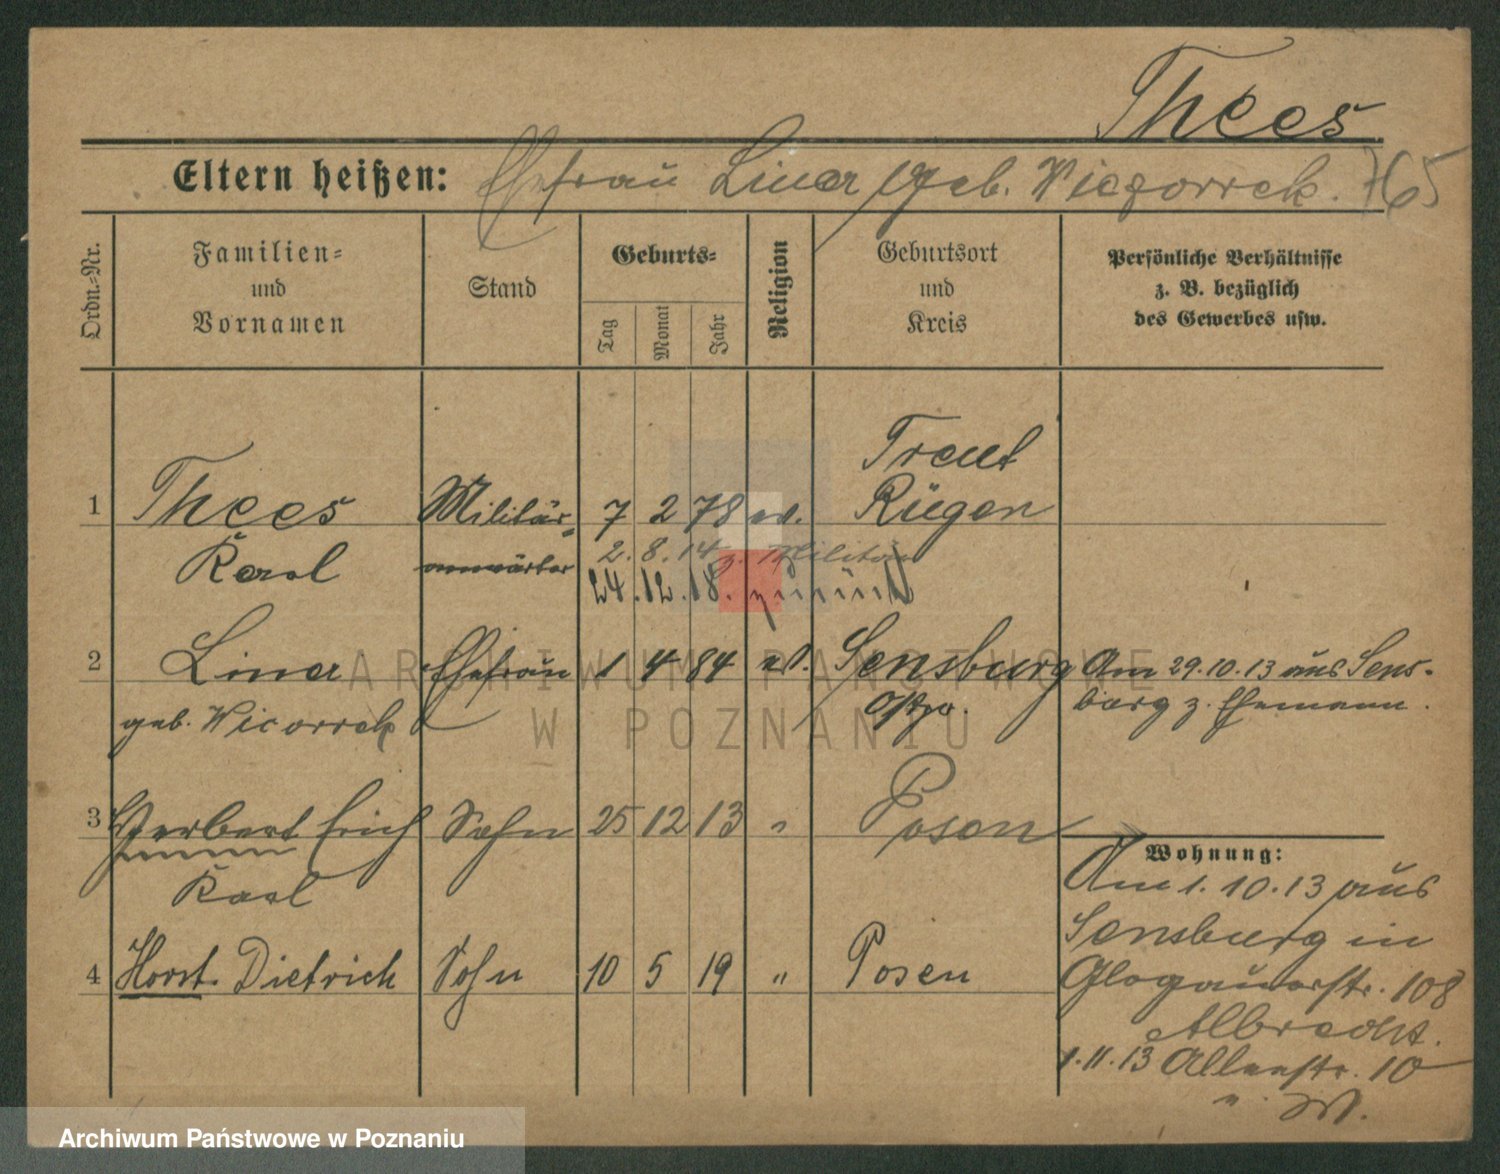 Thees
Eltern heißen: Ehefrau Liner geb. Wiczorrek. 765
Ordn.-Nr.
Familien- und Vornamen
Stand
Geburts-
Tag
Monat
Jahr
Religion
Geburtsort und Kreis
Persönliche Verhältnisse
z. B. bezüglich
des Gewerbes usw.
Trent
1 Thees Militär- 7 2 78 ev. Rügen
Karl anwärter 2. 8. 14 z. Militär
24. 12. 18. zurück
2 Liner Ehefrau 1 4 84 ev. Sensburg Am 29.10.13 aus Sens-
geb. Wicorrek Ostpr. burg z. Ehemann.
3 Herbert Erich Sohn 25 12 13 " Posen
Karl
Wohnung:
Am 1. 10. 13 aus
Sensburg in
4 Horst. Dietrich Sohn 10 5 19 " Posen
Glogauerstr. 108
Albrecht.
1. 11. 13 Alleestr. 10
v. W.
ARCHIWUM PAŃSTWOWE
W POZNANIU
Archiwum Państwowe w Poznaniu